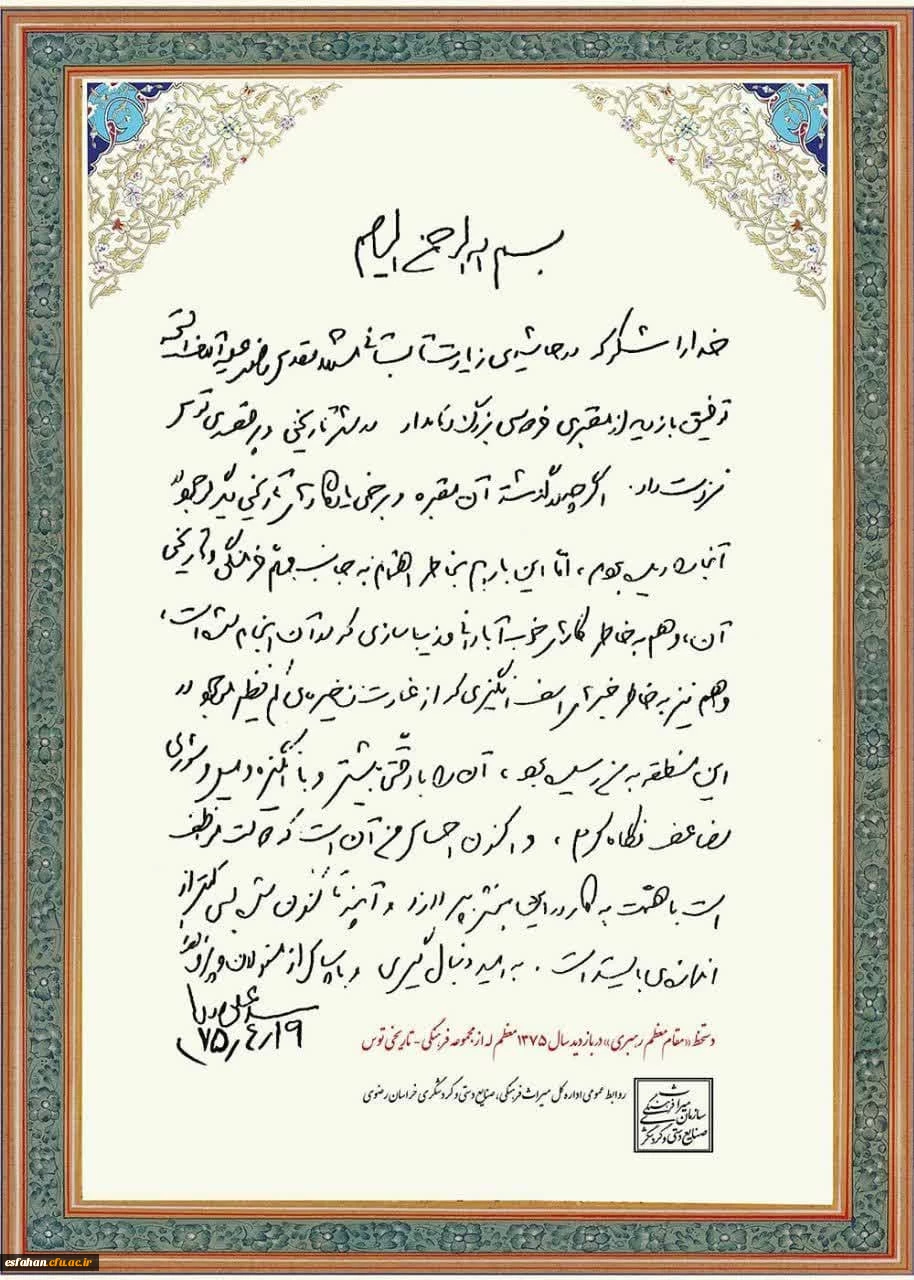 بسم الله الرحمن الرحیم
خدا را شکر که در حاشیه‌ی زیارت تابستانی مشهد مقدس رضوی علیه آلاف التحیه
توفیق بازدید از مقبره‌ی فردوسی بزرگ و نامدار در شهر تاریخی و پرقصه‌ی توس
نیز دست داد. اگرچه در گذشته آن مقبره و برخی یادگارهای تاریخی دیگر موجود در
آنجا را دیده بودم، اما این بار هم بخاطر اهتمام به جانب مهم فرهنگی و تاریخی
آن، و هم به خاطر کارهای خوب آبادانی و زیباسازی که در آن انجام شده است،
و هم نیز به خاطر خبرهای اسف‌انگیزی که از غارت ذخیره‌های کم‌نظیر موجود در
این منطقه به من رسیده بود، آن را با دقتی بیشتر و با انگیزه و امید و شوری
مضاعف نگاه کردم، و اکنون احساس من آن است که دولت موظف
است با همت به کار در این بخش بپردازد و آنچه تاکنون شده بسی کمتر از
اندازه‌ی بایسته است. به امید دنبال‌گیری و با سپاس از مسئولان
سید علی خامنه‌ای
۷۵/۴/۱۹
دستخط «مقام معظم رهبری» در بازدید سال ۱۳۷۵ معظم له از مجموعه فرهنگی - تاریخی توس
روابط عمومی اداره کل میراث فرهنگی، صنایع دستی و گردشگری خراسان رضوی
سازمان میراث فرهنگی
صنایع دستی و گردشگری
esfahan.cfu.ac.ir